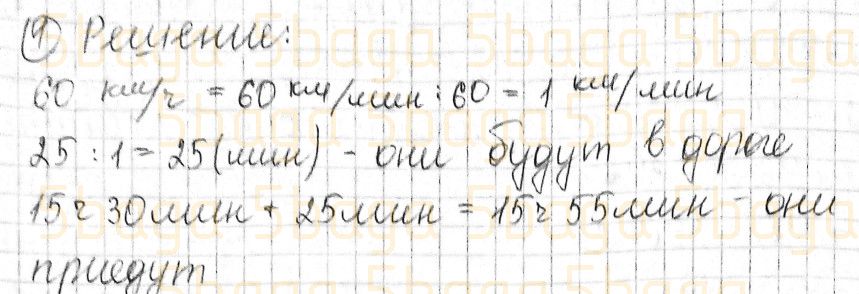 9 Решение:
60 км/ч = 60 км/мин : 60 = 1 км/мин
25 : 1 = 25 (мин) - они будут в дороге
15 ч 30 мин + 25 мин = 15 ч 55 мин - они
приедут